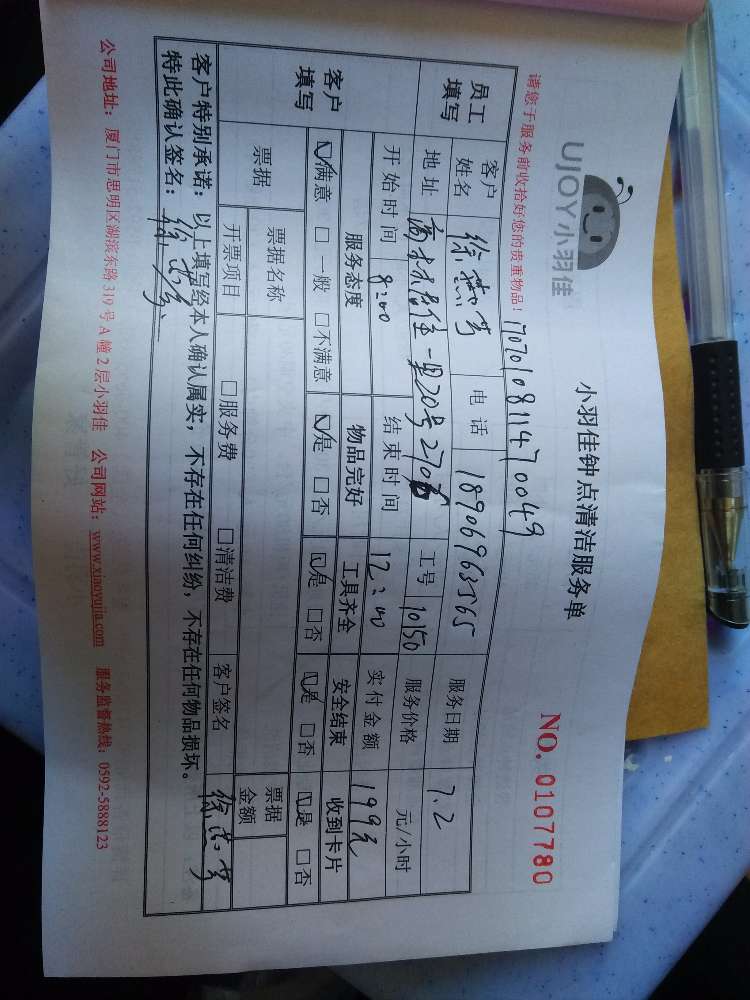 UJOY小羽佳
小羽佳钟点清洁服务单
NO. 0107780
请您于服务前收拾好您的贵重物品！
1707010811470049
员工填写 客户姓名 徐燕 电话 18906963565 服务日期 7.2
地址 一里20号 工号 10150 服务价格 元/小时
开始时间 8:00 结束时间 12:00 实付金额 199元
客户填写 服务态度 物品完好 工具齐全 安全结束 收到卡片
☑满意 □一般 □不满意 ☑是 □否 ☑是 □否 ☑是 □否 ☑是 □否
票据 票据名称 票据金额
开票项目 □服务费 □清洁费 客户签名
客户特别承诺：以上填写经本人确认属实，不存在任何纠纷，不存在任何物品损坏。
特此确认签名：
公司地址：厦门市思明区湖滨东路319号A幢2层小羽佳 公司网站：www.xiaoyujia.com 服务监督热线：0592-5888123